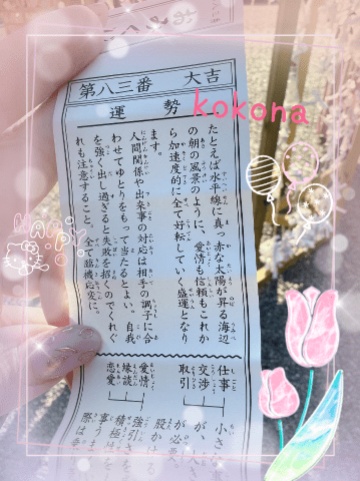 第八三番 大吉
運勢
kokona
たとえば水平線に真っ赤な太陽が昇る海辺
の朝の風景のように、愛情も信頼もこれか
ら加速度的に全て好転していく盛運となり
ます。
人間関係や出来事の対応は相手の調子に合
わせてゆとりをもって当たるとよい。自我
を強く出し過ぎると失敗を招くのでくれぐ
れも注意すること。全て臨機応変に。
仕事
交渉
取引
小さ
が、い
が必要
股かけ
愛情
縁談
恋愛
強引さを
積極は
事うま
際は幸
HAPPY